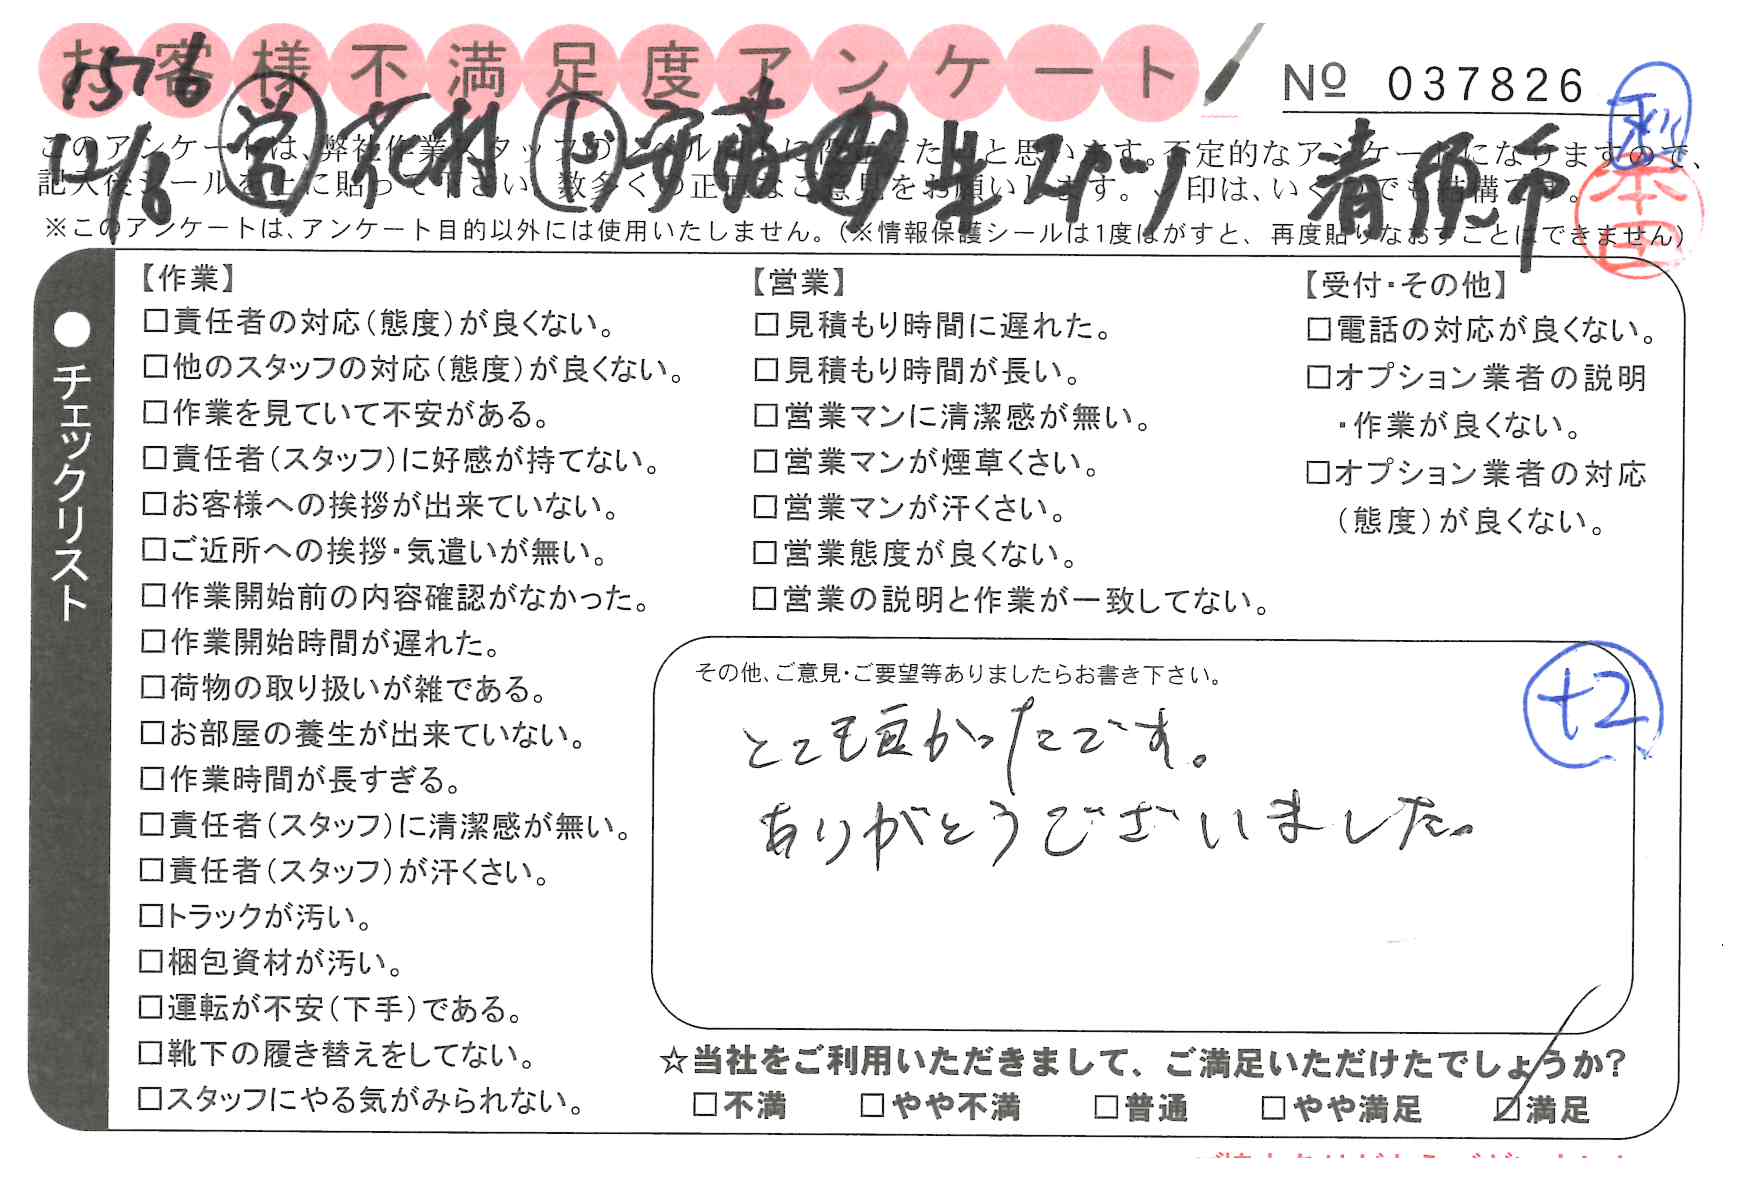 お客様不満足度アンケート
№ 037826
1576
12/6 営 花村 安藤
このアンケートは、弊社作業スタッフの
※このアンケートは、アンケート目的以外には使用いたしません。(※情報保護シールは1度はがすと、再度貼りなおすことはできません)
本田
●チェックリスト
【作業】
□責任者の対応(態度)が良くない。
□他のスタッフの対応(態度)が良くない。
□作業を見ていて不安がある。
□責任者(スタッフ)に好感が持てない。
□お客様への挨拶が出来ていない。
□ご近所への挨拶・気遣いが無い。
□作業開始前の内容確認がなかった。
□作業開始時間が遅れた。
□荷物の取り扱いが雑である。
□お部屋の養生が出来ていない。
□作業時間が長すぎる。
□責任者(スタッフ)に清潔感が無い。
□責任者(スタッフ)が汗くさい。
□トラックが汚い。
□梱包資材が汚い。
□運転が不安(下手)である。
□靴下の履き替えをしてない。
□スタッフにやる気がみられない。
【営業】
□見積もり時間に遅れた。
□見積もり時間が長い。
□営業マンに清潔感が無い。
□営業マンが煙草くさい。
□営業マンが汗くさい。
□営業態度が良くない。
□営業の説明と作業が一致してない。
【受付・その他】
□電話の対応が良くない。
□オプション業者の説明
・作業が良くない。
□オプション業者の対応
(態度)が良くない。
その他、ご意見・ご要望等ありましたらお書き下さい。
+2
とても良かったです。
ありがとうございました。
☆当社をご利用いただきまして、ご満足いただけたでしょうか?
□不満 □やや不満 □普通 □やや満足 ☑満足